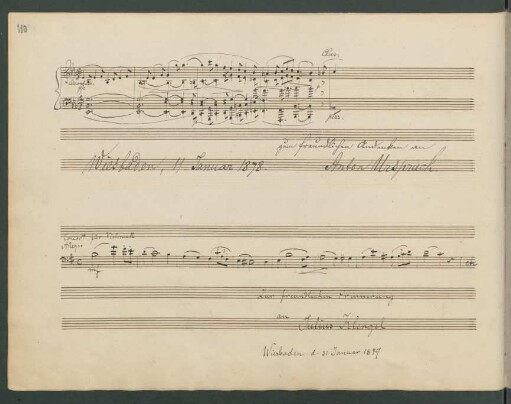 110
pp
zum freundlichen Andenken an
Wiesbaden, 11 Januar 1878. Anton Urspruch.
Concert für Violoncell
Allegro
mf
Zur freundlichen Erinnerung
an Julius Klengel
Wiesbaden d. 31 Januar 1879